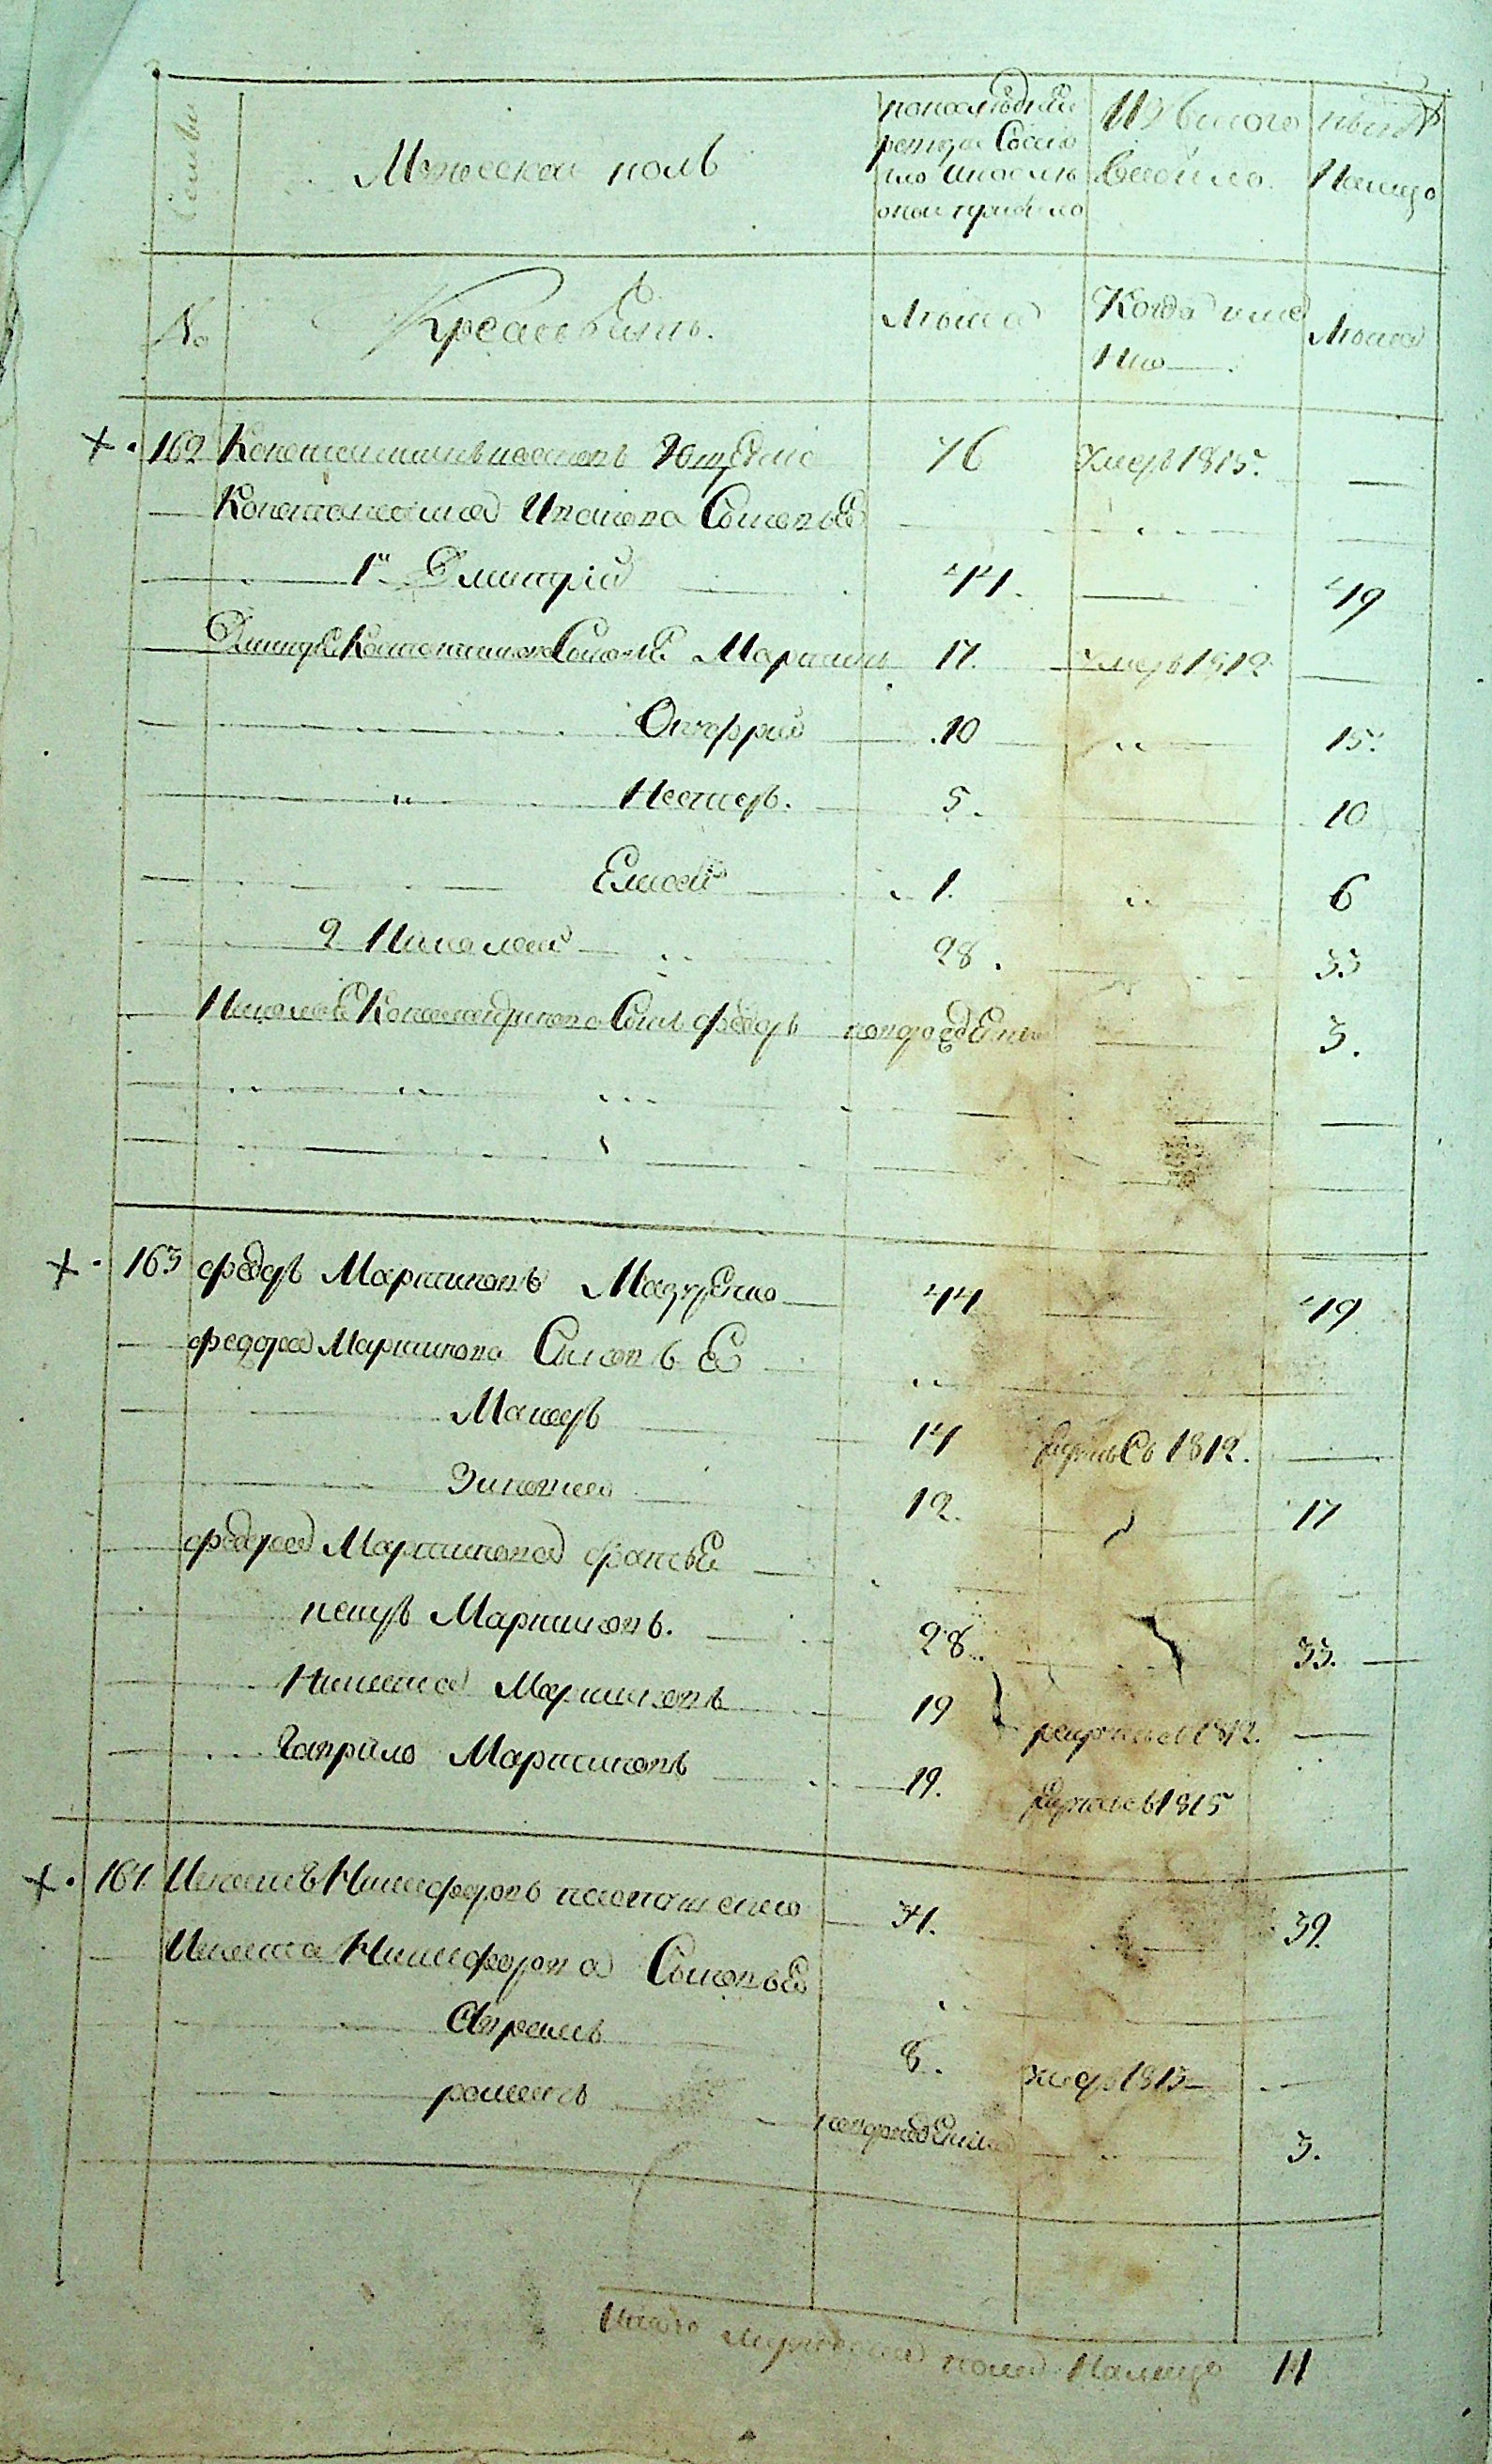 Семьи
Мужеской полъ
по последней
ревизи состо
яло и после
оной прибыло
Изъ того
выбыло
ныне
Налицо
№
Крестьяне.
Лета
Когда имен
но
Лета
162 Константинъ Ющенко 76 умеръ 1815.
Константина Иванова Сыновья
1й Дмитрій 44. 49
Дмитрия Константинова Сыновья Мартинъ 17. умеръ 1812
Онофрий 10 15.
Нестеръ. 5. 10
Елисей 1. 6
2 Николай 28. 33
Николая Константинова Сынъ федоръ новорожденъ 3.
163 федоръ Мартиновъ Мазуренко 44 49
федора Мартинова Сыновья
Макаръ 14 рекрутъ съ 1812.
Зиновей 12. 17
федора Мартинова братья
петръ Мартиновъ. 28. 33.
Никита Мартиновъ 19 рекрутъ съ 1812.
Гаврило Мартиновъ 19. рекрутъ съ 1815
164 Иванъ Никифоровъ 34. 39.
Ивана Никифорова Сыновья
Аврамъ 8. умеръ 1813
романъ новорожденъ 3.
Итого мужеска пола Налицо 11